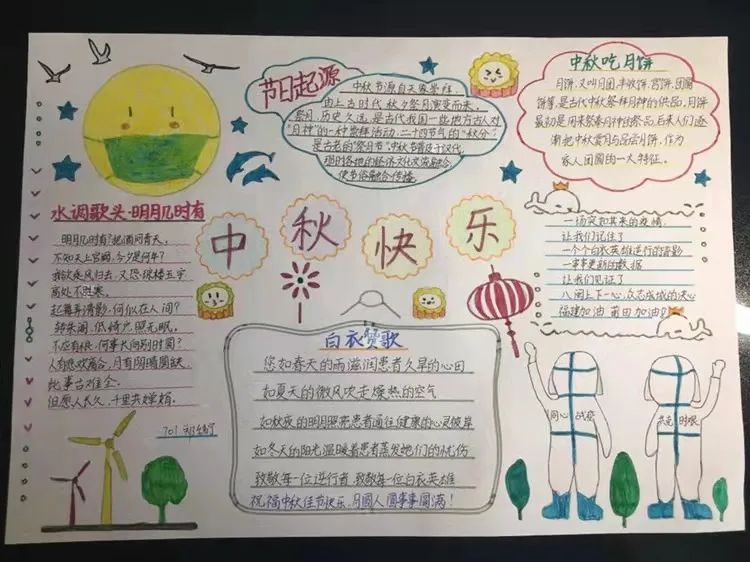 节日起源
中秋节源自天象崇拜
由上古时代秋夕祭月演变而来。
祭月,历史久远,是古代我国一些地方古人对
"月神"的一种崇拜活动,二十四节气的"秋分"
是古老的"祭月节"中秋节普及于汉代
使节俗融合传播
中秋吃月饼
月饼,又叫月团、丰收饼、宫饼、团圆
饼等,是古代中秋祭拜月神的供品,月饼
最初是用来祭奉月神的祭品,后来人们逐
渐把中秋赏月与品尝月饼,作为
家人团圆的一大特征。
水调歌头·明月几时有
明月几时有?把酒问青天。
不知天上宫阙,今夕是何年?
我欲乘风归去,又恐琼楼玉宇
高处不胜寒。
起舞弄清影,何似在人间?
转朱阁,低绮户,照无眠。
不应有恨,何事长向别时圆?
人有悲欢离合,月有阴晴圆缺,
此事古难全。
但愿人长久,千里共婵娟。
701
中秋快乐
一场突如其来的疫情,
让我们记住了
一个个白衣英雄逆行的背影
一串串更新的数据
让我们见证了
八闽上下一心,众志成城的决心
福建加油 莆田加油!
白衣赞歌
您如春天的雨滋润患者久旱的心田
如夏天的微风吹走燥热的空气
如秋夜的明月照亮患者通往健康的心灵彼岸
如冬天的阳光温暖着患者蒸发她们的忧伤
致敬每一位逆行者,致敬每一位白衣英雄
祝福中秋佳节快乐,月圆人圆事事圆满!
同心 战疫
共克 时艰